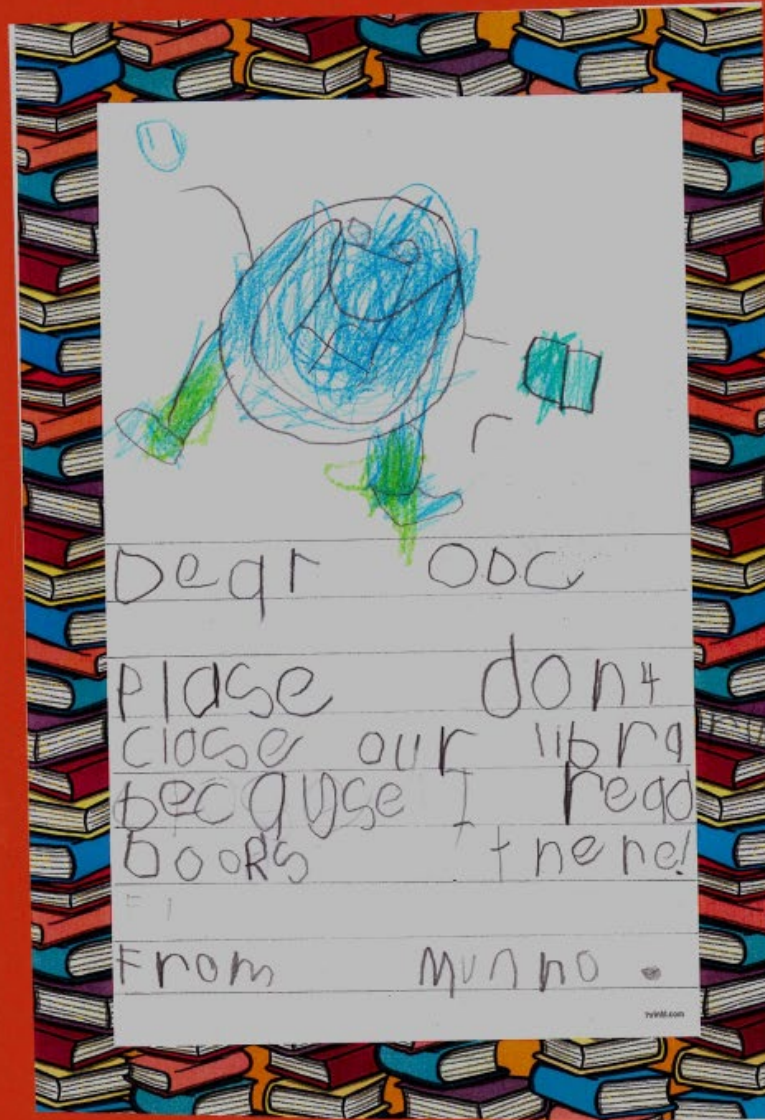 Dear OBC
Plase don4
close our libra
because I read
books there!
From Munno.
twinkl.com